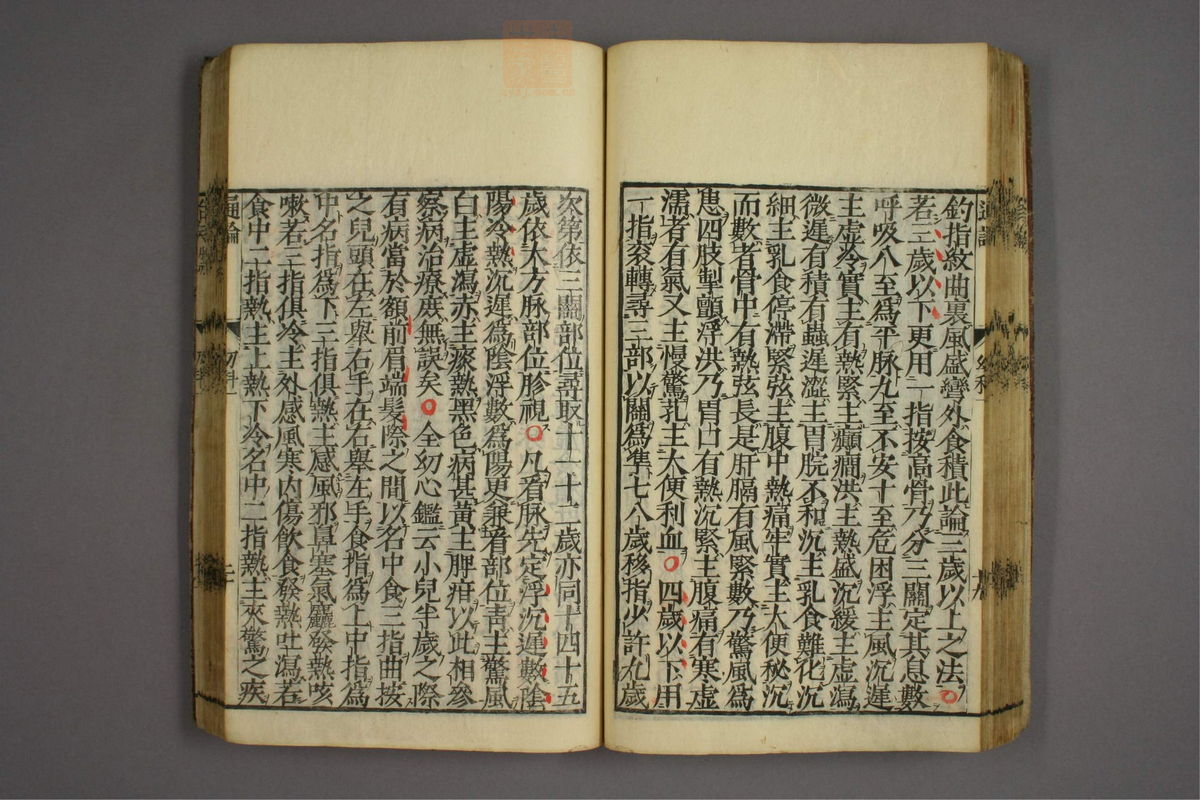 鈎指紋曲裏風盛彎外食積此論三歲以上之法〇
若三歲以下更用一指按高骨乃分三關定其息數
呼吸八至爲平脉九至不安十至危困浮主風沉遲
主虛冷實主有熱緊主癲癇洪主熱盛沉緩主虛瀉
微遲有積有蟲遲澁主胃脘不和沉主乳食難化沉
細主乳食停滯緊弦主腹中熱痛牢實主大便秘沉
而數者骨中有熱弦長是肝膈有風緊數乃驚風爲
患四肢掣顫浮洪乃胃口有熱沉緊主腹痛有寒虛
濡者有氣又主慢驚芤主大便利血〇四歲以下用
一指衮轉尋三部以關爲準七八歲移指少許九歲
次第依三關部位尋取十一十二歲亦同十四十五
歲依大方脉部位胗視〇凡看脉先定浮沉遲數陰
陽冷熱沉遲爲陰浮數爲陽更兼看部位靑主驚風
白主虛瀉赤主痰熱黑色病甚黃主脾疳以此相參
察病治療庶無誤矣〇全幼心鑑云小兒半歲之際
有病當於額前眉端髮際之間以名中食三指曲按
之兒頭在左舉右手在右舉左手食指爲上中指爲
中名指爲下三指俱熱主感風邪鼻塞氣麤發熱咳
嗽若三指俱冷主外感風寒內傷飲食發熱吐瀉若
食中二指熱主上熱下冷名中二指熱主夾驚之疾
通論